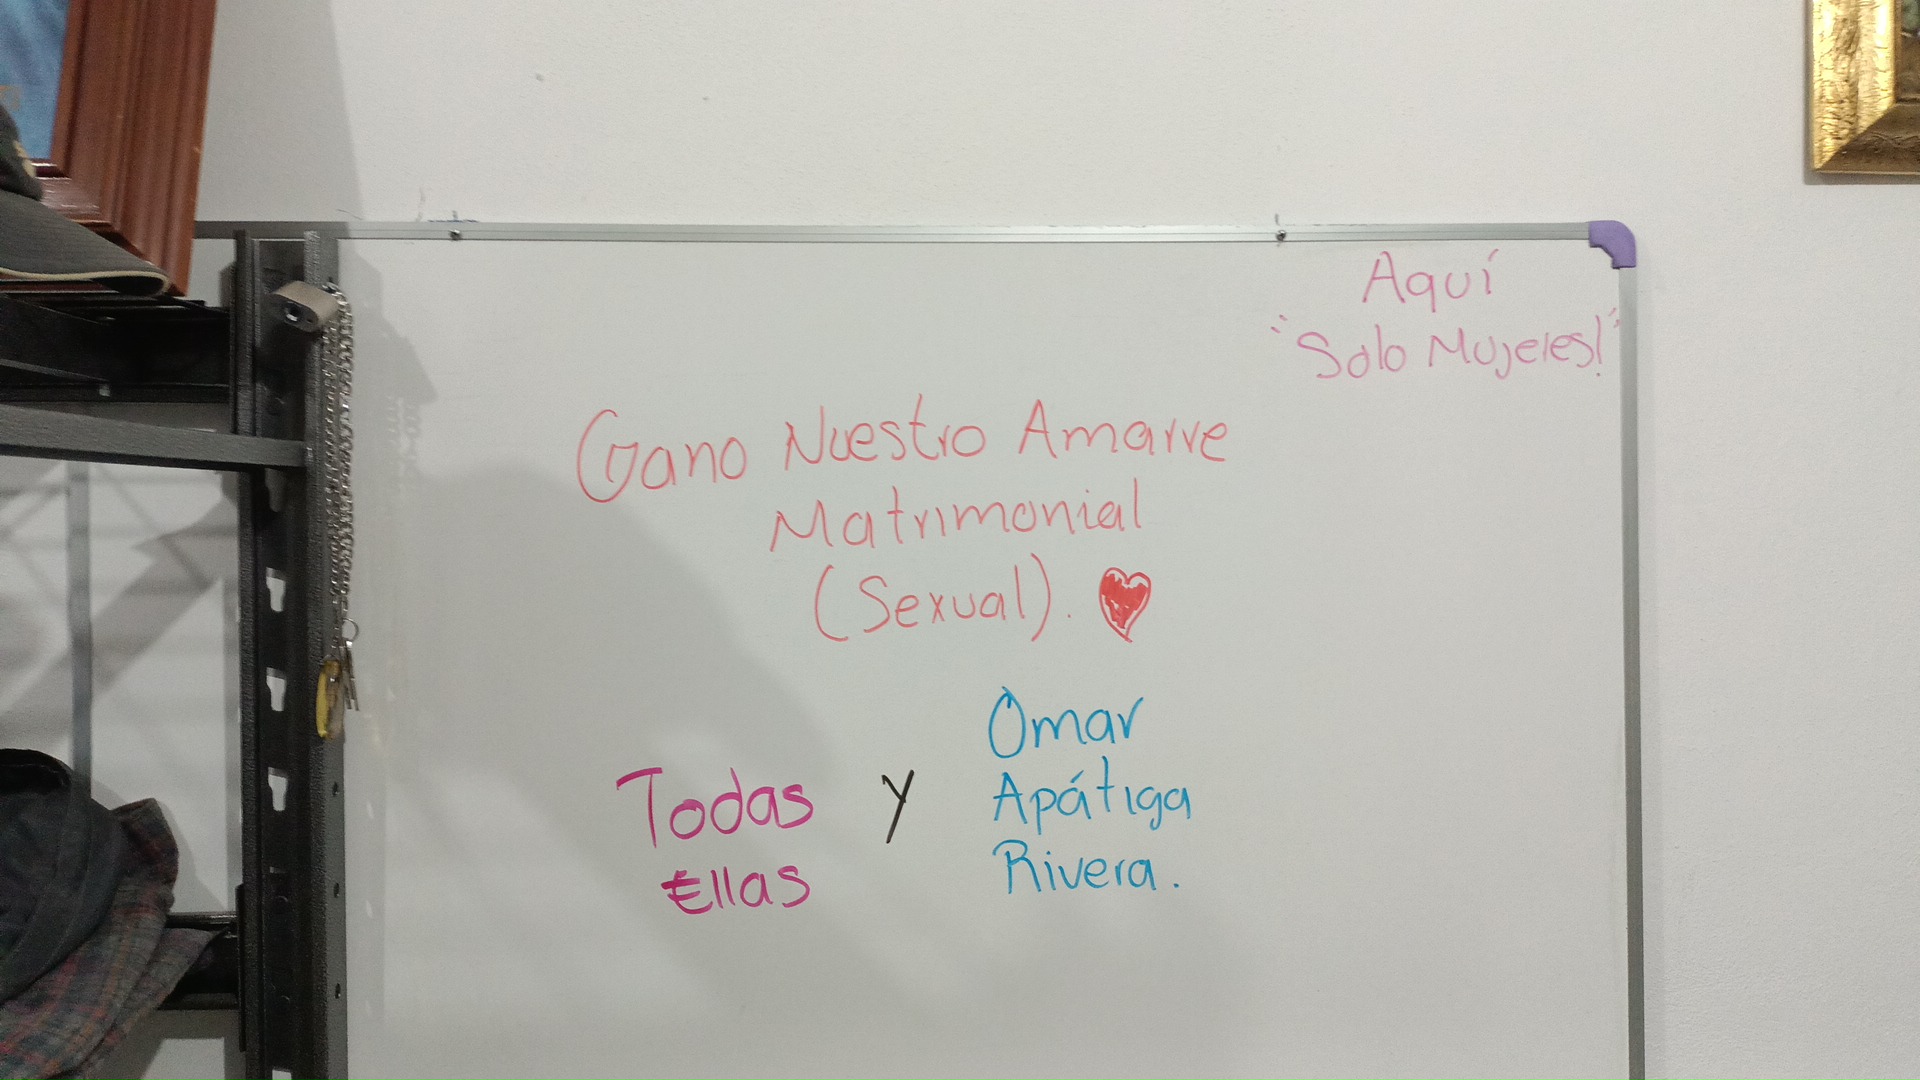 Aquí
"Solo Mujeres!"
Gano Nuestro Amarre
Matrimonial
(Sexual). ♥
Omar
Todas y Apátiga
Ellas Rivera.